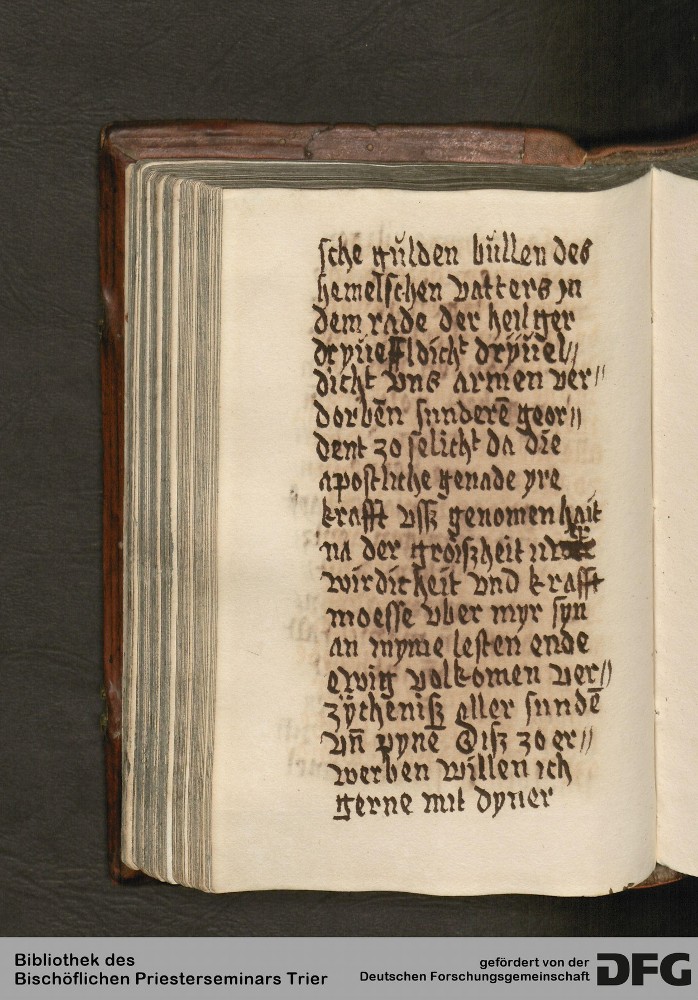 sche gulden bullen des
hemelschen vatters yn
dem rade der heilger
dryueffldicht dryuel//
dicht vns armen ver//
dorben sunderē geor//
dent zo selicht da die
apostliche genade yre
krafft vsß genomen hait
na der groißheit
wirdicheit vnd krafft
moesse vber myr syn
an myme lesten ende
ewig volkomen ver//
zycheniß aller sundē
vn̄ pynē Diß zo er//
werben willen ich
gerne mit dyner
Bibliothek des
Bischöflichen Priesterseminars Trier
gefördert von der
Deutschen Forschungsgemeinschaft DFG